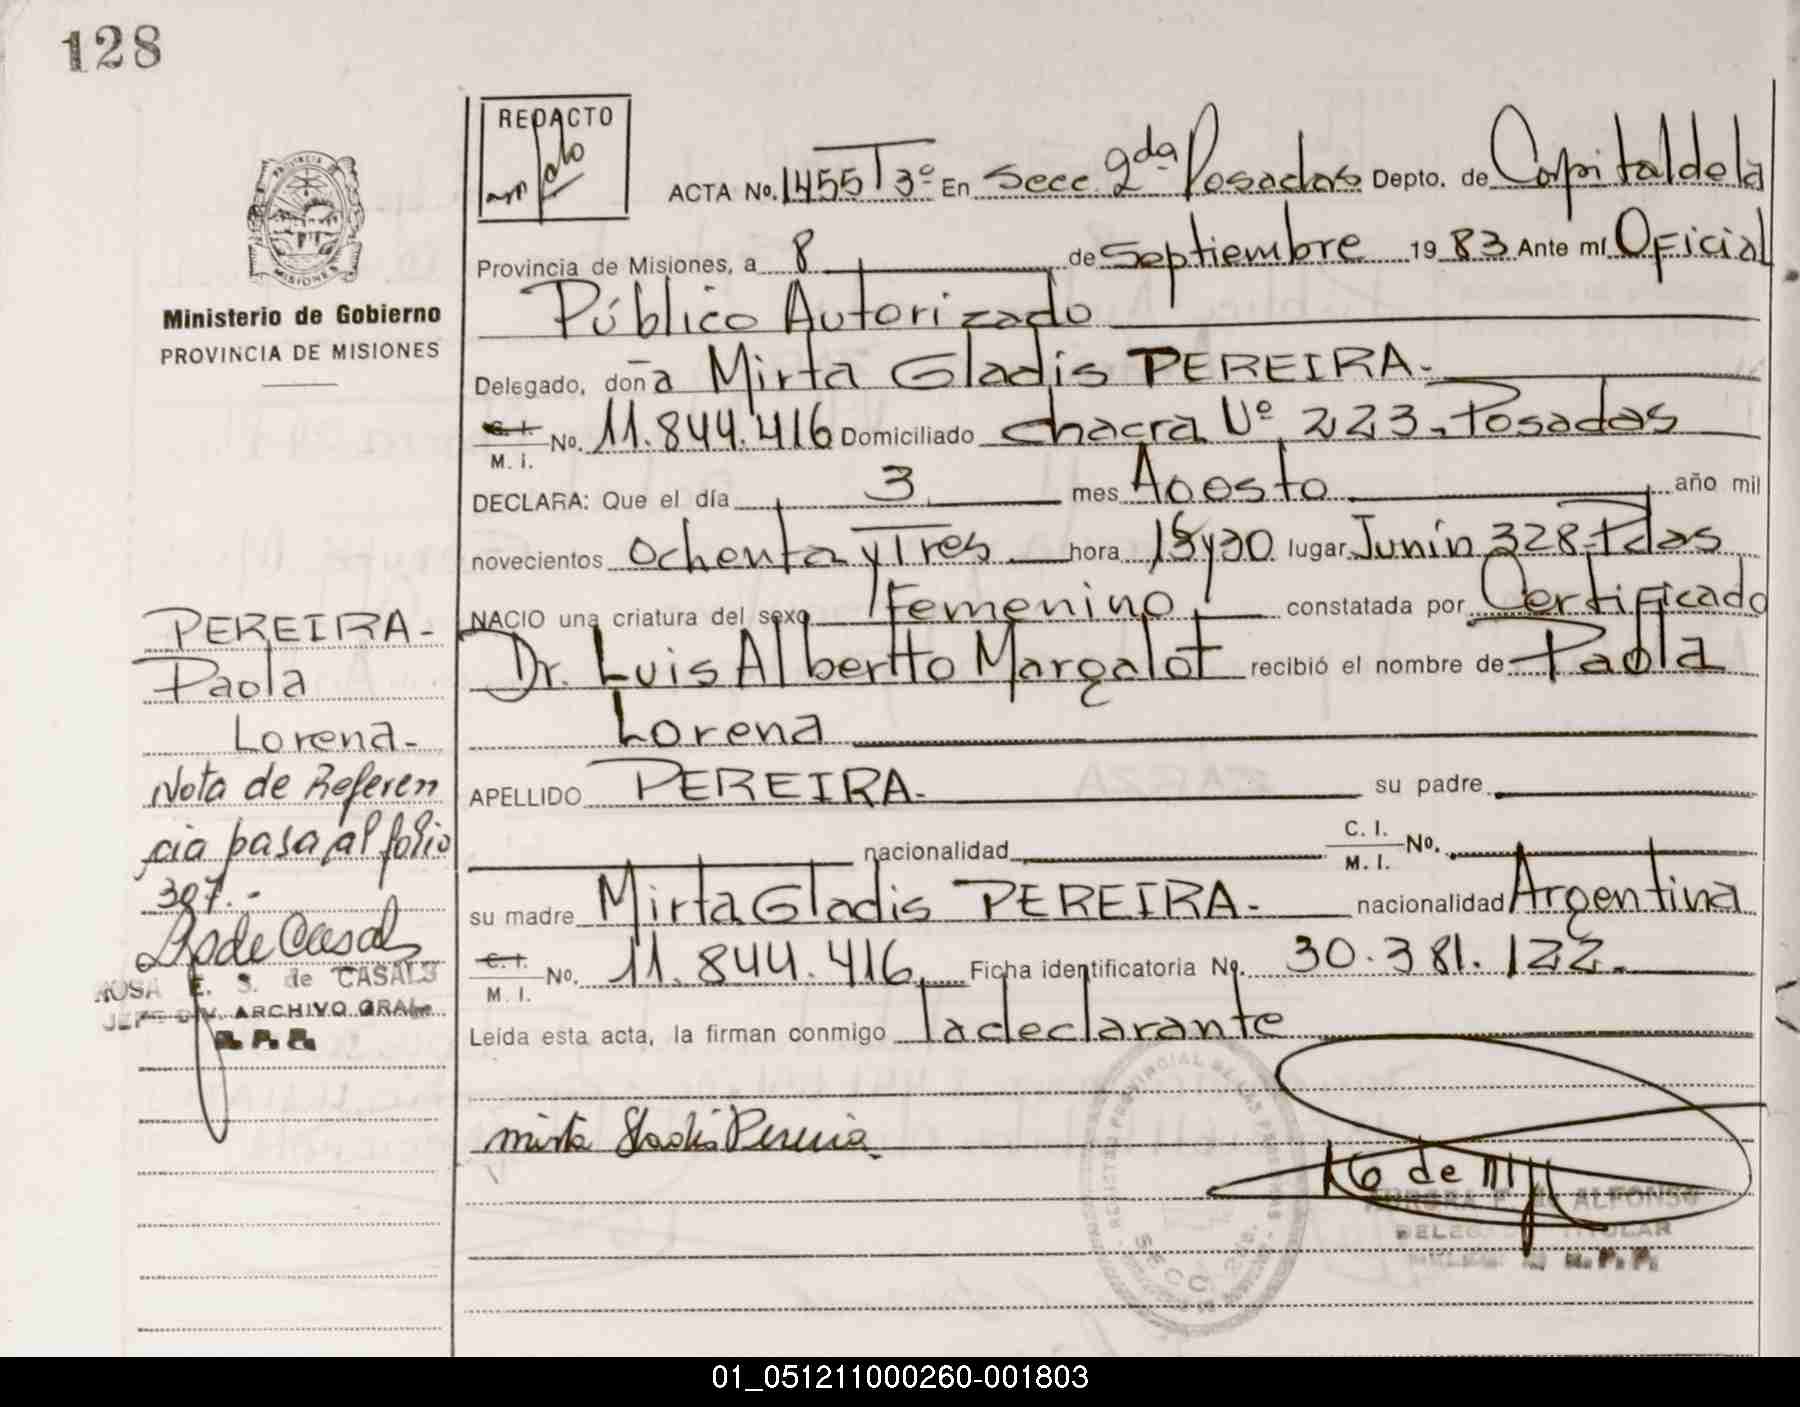 128
REDACTO
ACTA No. 1455 T 3º En Secc. 2da Posadas Depto. de Capital de la
Provincia de Misiones, a 8 de Septiembre 19 83 Ante mí Oficial
Público Autorizado
Delegado, doña Mirta Gladis PEREIRA.-
C. I. / M. I. No. 11.844.416 Domiciliado chacra Nº 223. Posadas
DECLARA: Que el día 3 mes Agosto año mil
novecientos ochenta y Tres hora 18 y 30 lugar Junín 328-Pdas
NACIO una criatura del sexo Femenino constatada por Certificado
Dr. Luis Albertto Margalot recibió el nombre de Paola
Lorena
APELLIDO PEREIRA.- su padre
nacionalidad C. I. / M. I. No.
su madre Mirta Gladis PEREIRA.- nacionalidad Argentina
C. I. / M. I. No. 11.844.416 Ficha identificatoria No. 30.381.122.-
Leída esta acta, la firman conmigo la declarante
Mirta Gladis Pereira
MISIONES
Ministerio de Gobierno
PROVINCIA DE MISIONES
PEREIRA-
Paola
Lorena-
Nota de Referen
cia pasa al folio
307.-
ROSA E. S. de CASALS
JEFE DIV. ARCHIVO GRAL
R.P.P.
SECC. 2da.
de ALFONSO
DELEGADO TITULAR
R.P.P.
01_051211000260-001803